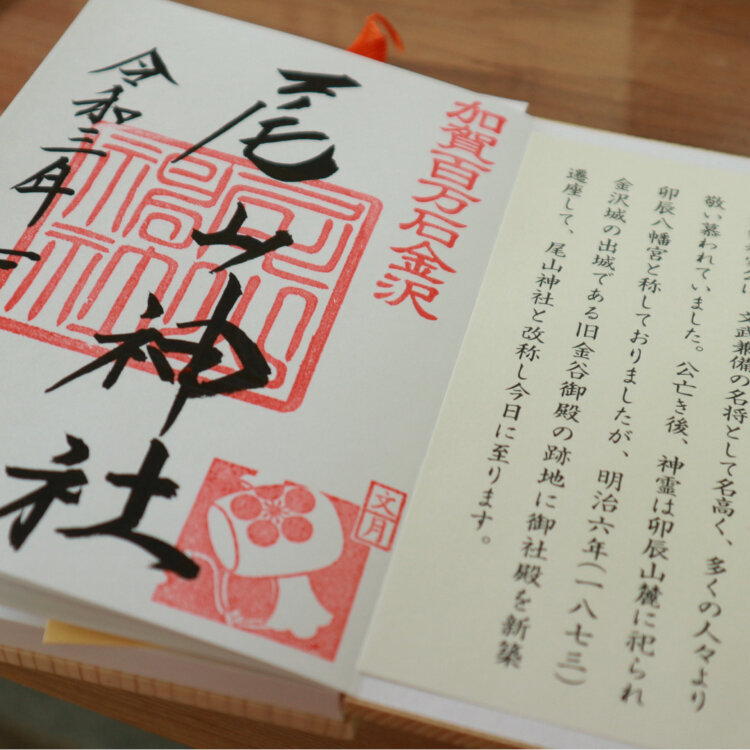 文武兼備の名将として名高く、多くの人々より
敬い慕われていました。公亡き後、神霊は卯辰山麓に祀られ
卯辰八幡宮と称しておりましたが、明治六年(一八七三)
金沢城の出城である旧金谷御殿の跡地に御社殿を新築
遷座して、尾山神社と改称し今日に至ります。
加賀百万石金沢
文月
尾山神社
令和三年